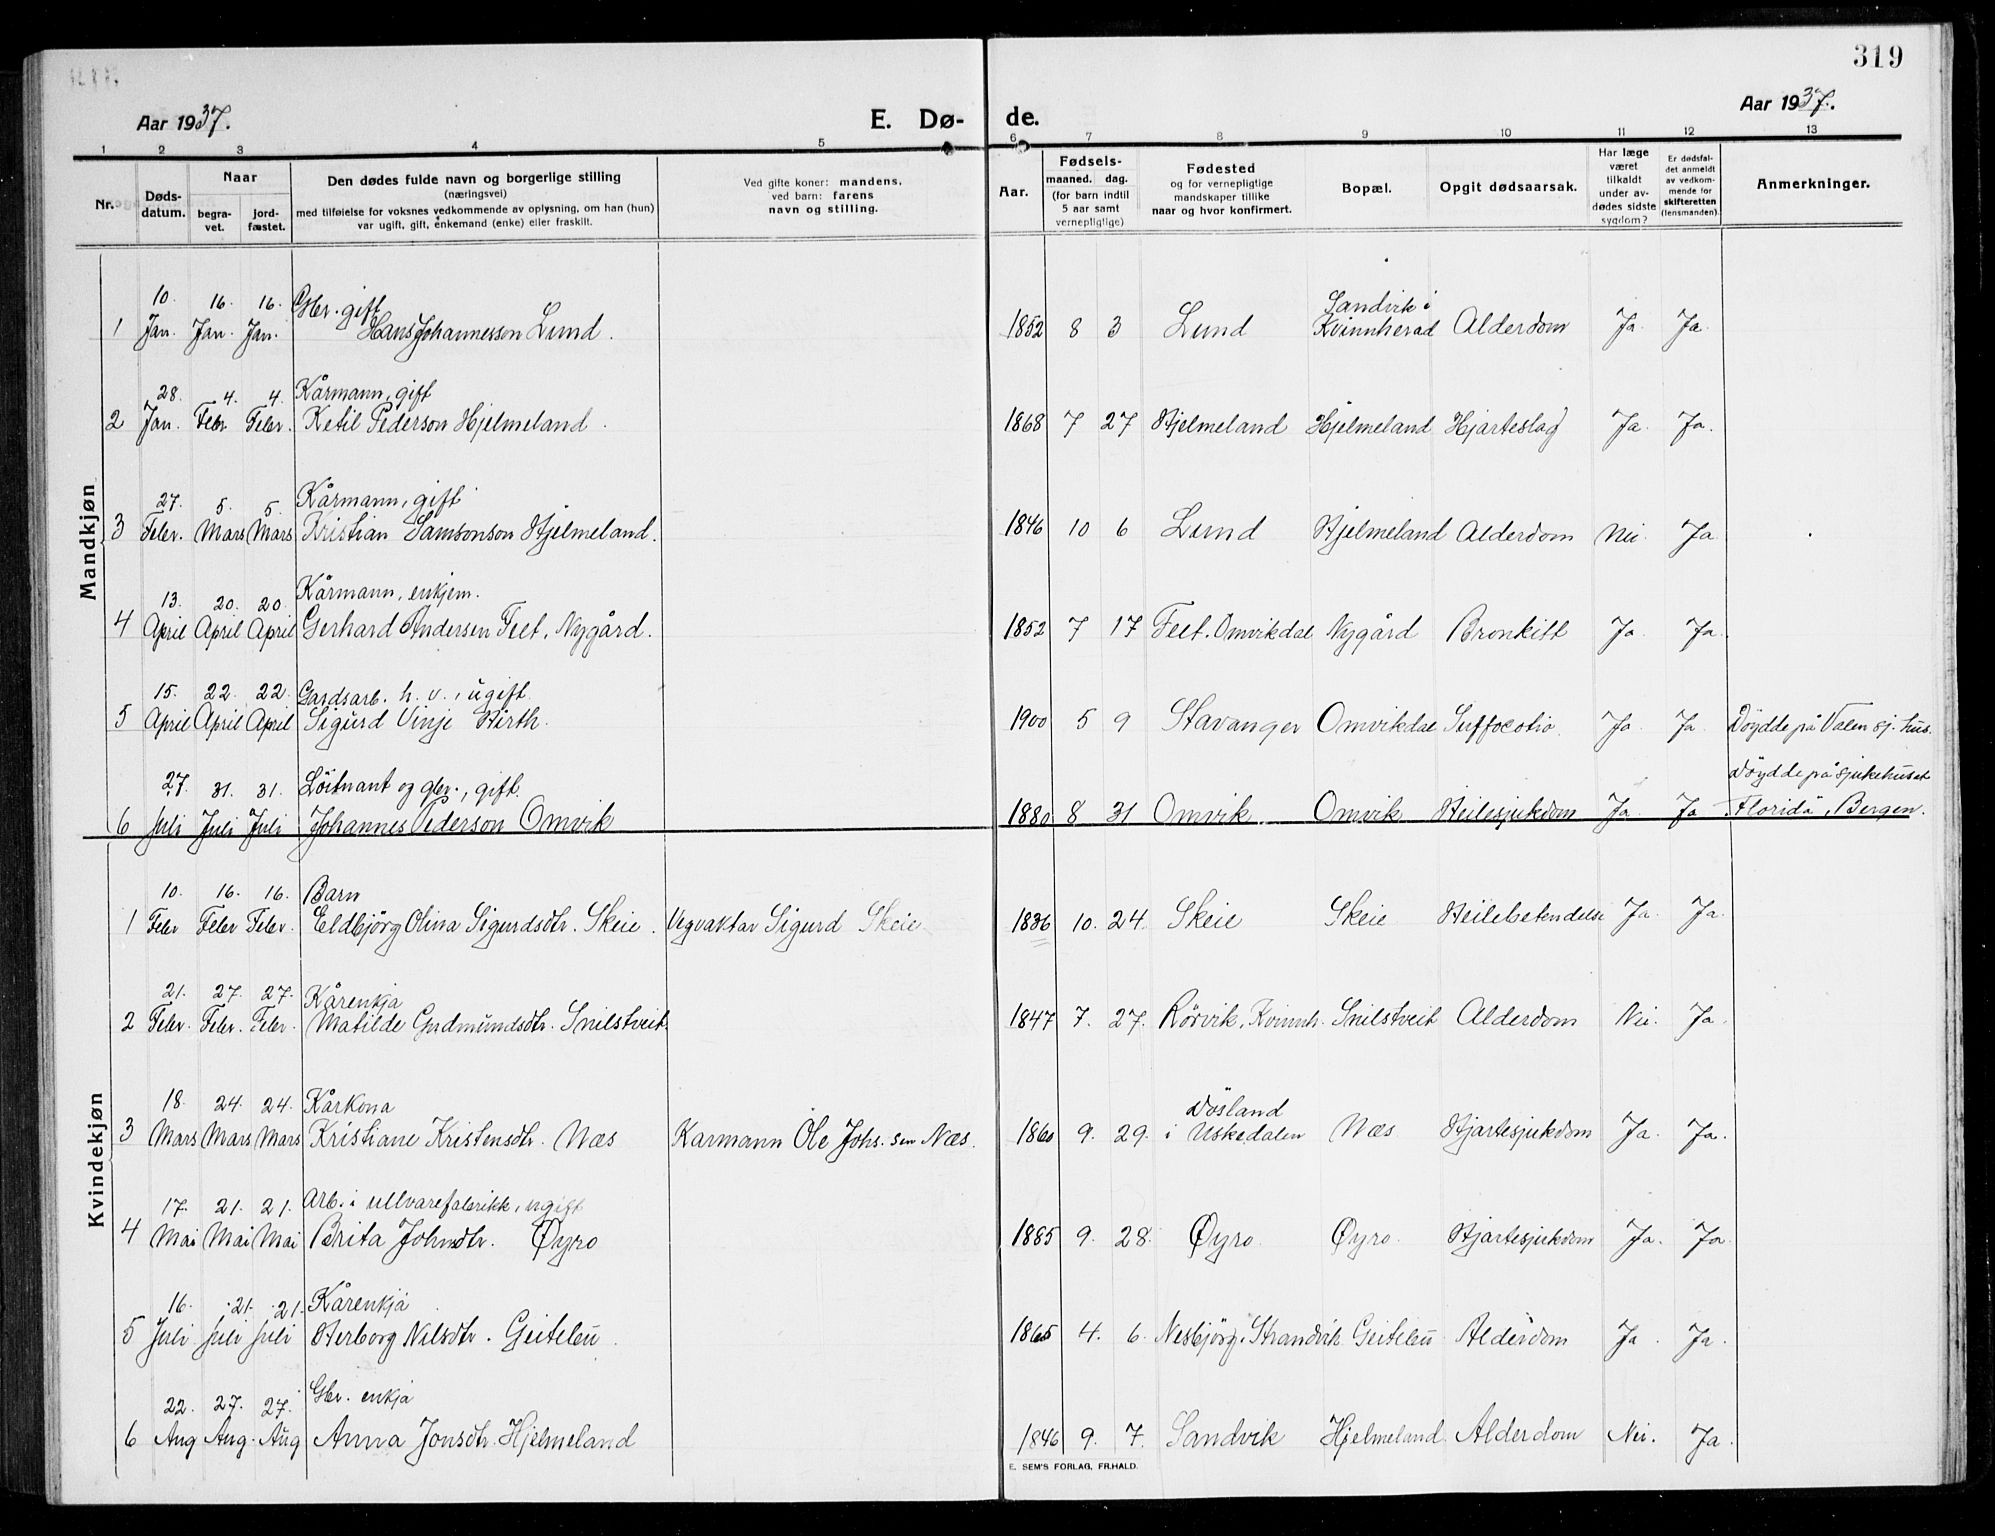 319
Aar 1937. E. Dø- de. Aar 1937.
1 2 3 4 5 6 7 8 9 10 11 12 13
Nr. Døds-datum. Naar begra-vet. jord-fæstet. Den dødes fulde navn og borgerlige stilling (næringsvei) med tilføielse for voksnes vedkommende av oplysning, om han (hun) var ugift, gift, enkemand (enke) eller fraskilt. Ved gifte koner: mandens, ved barn: farens navn og stilling. Aar. Fødsels- maaned. dag. (for barn indtil 5 aar samt vernepligtige) Fødested og for vernepligtige mandskaper tillike naar og hvor konfirmert. Bopæl. Opgit dødsaarsak. Har læge været tilkaldt under av-dødes sidste sygdom? Er dødsfal-det anmeldt av vedkom-mende for skifteretten (lensmanden). Anmerkninger.
Mandkjøn
10. 16. 16. Gbr. gift Sandvik i
1 Jan. Jan. Jan. Hans Johannesson Lund. 1852 8 3 Lund Kvinnherad Alderdom Ja Ja.
28. 4. 4. Kårmann, gift
2 Jan. Febr Febr. Ketil Pederson Hjelmeland. 1868 7 27 Hjelmeland Hjelmeland Hjarteslag Ja. Ja.
27. 5. 5. Kårmann, gift
3 Febr. Mars Mars Kristian Samsonson Hjelmeland. 1846 10 6 Lund Hjelmeland Alderdom Nei. Ja
13. 20. 20. Kårmann, enkjem.
4 April April April Gerhard Andersen Feet, Nygård. 1852 7 17 Feet. Omvikdal Nygård Bronkitt Ja Ja.
15. 22. 22. Gardsarb. h. v., ugift.
5 April April April Sigurd Vinje Hirth. 1900 5 9 Stavanger Omvikdal Suffocotio. Ja. Ja. Døydde på Valen sj.hus.
27. 31. 31. Løitnant og gbr., gift. Døydde på sjukehuset
6 Juli Juli Juli Johannes Pederson Omvik 1880 8 31 Omvik. Omvik Heilesjukdom Ja. Ja Florida, Bergen.
Kvindekjøn
10. 16. 16. Barn
1 Febr Febr Febr. Eldbjørg Olina Sigurdsdtr. Skeie. Vegvaktar Sigurd Skeie. 1836 10. 24. Skeie Skeie Heilebetendelse Ja. Ja.
21. 27. 27. Kårenkja
2 Febr. Febr. Febr. Matilde Gudmundsdtr. Snilstveit. 1847 7. 27. Rørvik, Kvinnh. Snilstveit Alderdom Nei. Ja.
18. 24. 24. Kårkona Døsland
3 Mars Mars Mars Kristiane Kristensdtr. Næs Karmann Ole Johs.sen Næs. 1860 9. 29. i Uskedalen Næs Hjartesjukdom Ja. Ja.
17. 21. 21. Arb. i ullvarefabrikk, ugift
4 Mai Mai Mai Brita Johnsdtr. Øyro 1885 9. 28. Øyro. Øyro. Hjartesjukdom Ja. Ja.
16. 21. 21. Kårenkja
5 Juli Juli Juli Herborg Nilsdtr. Geiteleu. 1865 4. 6. Nesbjørg i Strandvik Geiteleu Alderdom Ja. Ja.
22. 27. 27. Gbr. enkja
6 Aug Aug. Aug Anna Jonsdtr. Hjelmeland 1846 9. 7. Sandvik Hjelmeland. Alderdom Nei. Ja.
E. SEM'S FORLAG, FR.HALD.